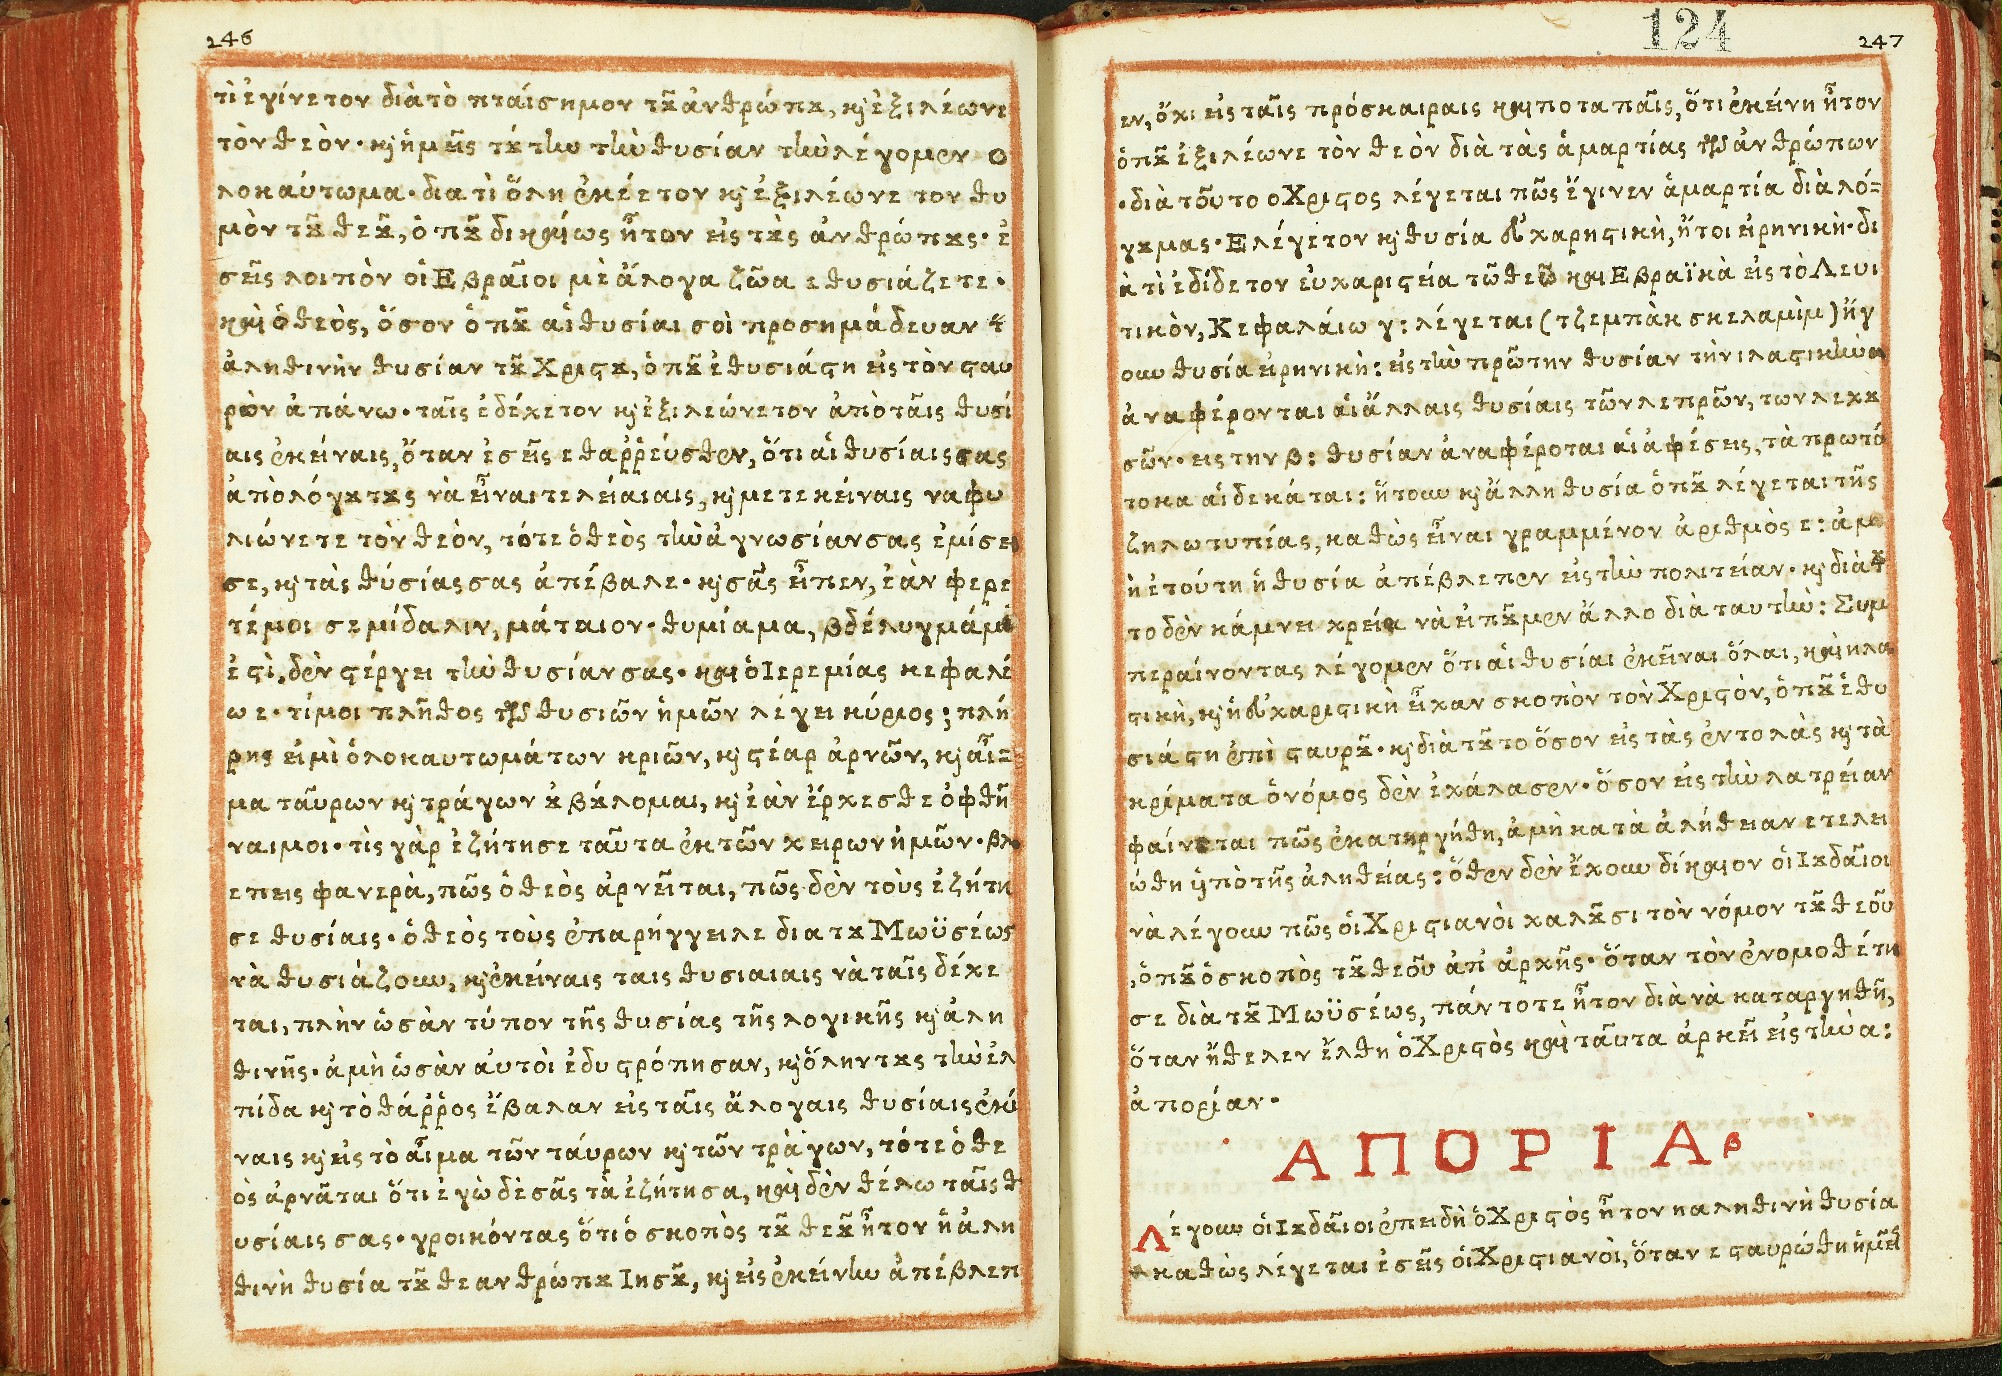 246
τὶ ἐγίνετον διὰ τὸ πταίσημον τȣ͂ ἀνθρώπȣ, κ̀ ἐξιλέωνε
τὸν θεὸν· κ̀ ἡμεῖς τȣ́την τὴν θυσίαν τὴν λέγομεν ο
λοκαύτωμα· δια τὶ ὅλη ἐκέετον κ̀ ἐξιλέωνε τον θυ
μὸν τȣ͂ θεȣ͂, ὁπȣ͂ δικαίως ἦτον εἰς τȣ̀ς ἀνθρώπȣς· ἐ
σεῖς λοιπὸν οἱ Εβραῖοι μὲ ἄλογα ζῶα εθυσιάζετε·
καὶ ὁ θεὸς, ὅσον ὁπȣ͂ αἱ θυσίαι σοὶ προσημάδευαν τ̀
ἀληθινὴν θυσίαν τȣ͂ Χριϛȣ, ὁπȣ͂ ἐθυσιάϛη εἰς τὸν ϛαυ
ρὼν ἀπάνω· ταῖς ἐδέχετον κ̀ ἐξιλεώνετον ἀπὸ ταῖς θυσί
αις ἐκείναις, ὅταν ἐσεῖς εθαῤῥεύσθεν, ὅτι αἱ θυσίαις σας
ἀπὸ λόγȣ τȣς νὰ εἶναι τελείαιαις, κ̀ με τεκείναις να φυ
λιώνετε τὸν θεὸν, τότε ὁ θεὸς τὴν ἀγνωσίαν σας ἐμίσει
σε, κ̀ τὰς θυσίας σας ἀπέβαλε· κ̀ σᾶς εἶπεν, ἐὰν φερε
τέ μοι σεμίδαλιν, μάταιον· θυμίαμα, βδέλυγμά μȣ
ἐϛὶ, δὲν ϛέργει τὴν θυσίαν σας· καὶ ὁ Ιερεμίας κεφαλέ
ω ε· τί μοι πλῆθος τῶν θυσιῶν ἡμῶν λέγει κύριος; πλή
ρης εἰμὶ ὁλοκαυτωμάτων κριῶν, κ̀ ϛέαρ ἀρνῶν, κ̀ αἷ=
μα ταῦρων κ̀ τράγων ȣ βȣ́λομαι, κ̀ ἐὰν ἔρχεσθε ὀφθῆ
ναι μοι· τὶς γὰρ ἐζήτησε ταῦτα ἐκ τῶν χειρων ἡμῶν· βλ
επεις φανερὰ, πῶς ὁ θεὸς ἀρνεῖται, πῶς δὲν τοὺς ἐζήτη
σε θυσίαις· ὁ θεὸς τοὺς ἐπαρήγγειλε δια τȣ Μωϋσέως
νὰ θυσιάζουν, κ̀ ἐκείναις ταις θυσιαιαις νὰ ταῖς δέχε
ται, πλὴν ὡσὰν τύπον τῆς θυσίας τῆς λογικῆς κ̀ ἀλη
θινῆς· ἀμὴ ὡσὰν ἀυτοὶ ἐδυϛρόπησαν, κ̀ ὅλην τȣς τὴν ἐλ
πίδα κ̀ τὸ θάῤῥος ἔβαλαν εἰς ταῖς ἄλογαις θυσίαις ἐκεί
ναις κ̀ εἰς τὸ αἷμα τῶν τάυρων κ̀ τῶν τράγων, τότε ὁ θε
ὸς ἀρνᾶται ὅτι ἐγὼ δὲ σᾶς τὰ ἐζήτησα, καὶ δὲν θέλω ταῖς θ
υσίαις σας· γροικόντας ὅτι ὁ σκοπὸς τȣ͂ θεȣ͂ ἦτον ἡ ἀλη
θινὴ θυσία τȣ͂ θεανθρώπȣ Ιησȣ͂, κ̀ εἰς ἐκείνην ἀπέβλεπ
124
247
εν, ὄχι εἰς ταῖς πρόσκαιραις καὶ ποταπαῖς, ὅτι ἐκείνη ἦτον
ὁπȣ͂ ἐξιλέωνε τὸν θεὸν διὰ τὰς ἁμαρτίας τῶν ἀνθρώπων
· διὰ τοῦτο ο Χριϛος λέγεται πῶς ἔγινεν ἁμαρτία διὰ λό=
γȣ μας· Ελέγετον κ̀ θυσία ευχαρηϛικὴ, ἤτοι εἰρηνικὴ· δι
ὰ τὶ ἐδίδετον ἐυχαριϛεία τῶ θεῶ καὶ Εβραϊκὰ εἰς τὸ Λευι
τικὸν, Κεφαλάιω γ: λέγεται (τζεμπὰκ σκελαμὶμ) ἤγ
ουν θυσία εἰρηνικὴ: εἰς τὴν πρῶτην θυσίαν τὴν ιλαϛικὴν
ἀναφέρονται αἱ ἄλλαις θυσίαις τῶν λεπρῶν, των λεχȣ
σῶν· εις την β: θυσίαν ἀναφέροται αἱ ἀφέσεις, τὰ πρωτό
τοκα αἱ δεκάται: ἤτουν κ̀ ἄλλη θυσία ὁπȣ͂ λέγεται τῆς
ζηλωτυπίας, καθὼς εἶναι γραμμένον ἀριθμὸς ε: ἀμ
ὴ ἐτούτη ἡ θυσία ἀπέβλεπεν εἰς τὴν πολιτείαν· κ̀ διὰ τȣ͂
το δὲν κάμνει χρεία νὰ εἰπȣ͂μεν ἄλλο διὰ ταυτὴν: Συμ
περαίνοντας λέγομεν ὅτι αἱ θυσίαι ἐκεῖναι ὅλαι, καὶ ηλα
ϛικὴ, κ̀ ἡ ευχαριϛικὴ εἶχαν σκοπὸν τὸν Χριϛὸν, ὁπȣ͂ ἐθυ
σιάϛη ἐπὶ ϛαυρȣ͂· κ̀ διὰ τȣ͂το ὅσον εἰς τὰς ἐντολὰς κ̀ τὰ
κρίματα ὁ νόμος δὲν ἐχάλασεν· ὅσον εἰς τὴν λατρείαν
φαίνεται πῶς ἐκατηργήθη, ἀμὴ κατὰ ἀλήθειαν ετελει
ώθη ὑπὸ τῆς ἀληθείας: ὅθεν δὲν ἔχουν δίκαιον οἱ Ιȣδαῖοι
νὰ λέγουν πῶς οἱ Χριϛιανοὶ χαλȣ͂σι τὸν νόμον τȣ͂ θεοῦ
, ὁπȣ͂ ὁ σκοπὸς τȣ͂ θεοῦ ἀπ' ἀρχῆς· ὅταν τὸν ἐνομοθέτη
σε διὰ τȣ͂ Μωϋσέως, πάντοτε ἦτον διὰ νὰ καταργηθῆ,
ὅταν ἤθελεν ἔλθη ὁ Χριϛὸς καὶ ταῦτα ἀρκεῖ εἰς τὴν α:
ἀπορίαν·
ΑΠΟΡΙΑ β
Λέγουν οἱ Ιȣδαῖοι ἐπειδὴ ὁ Χριϛὸς ἦτον η αληθινὴ θυσία
καθὼς λέγεται ἐσεῖς οἱ Χριϛιανοὶ, ὅταν εϛαυρώθη ἡμεῖς